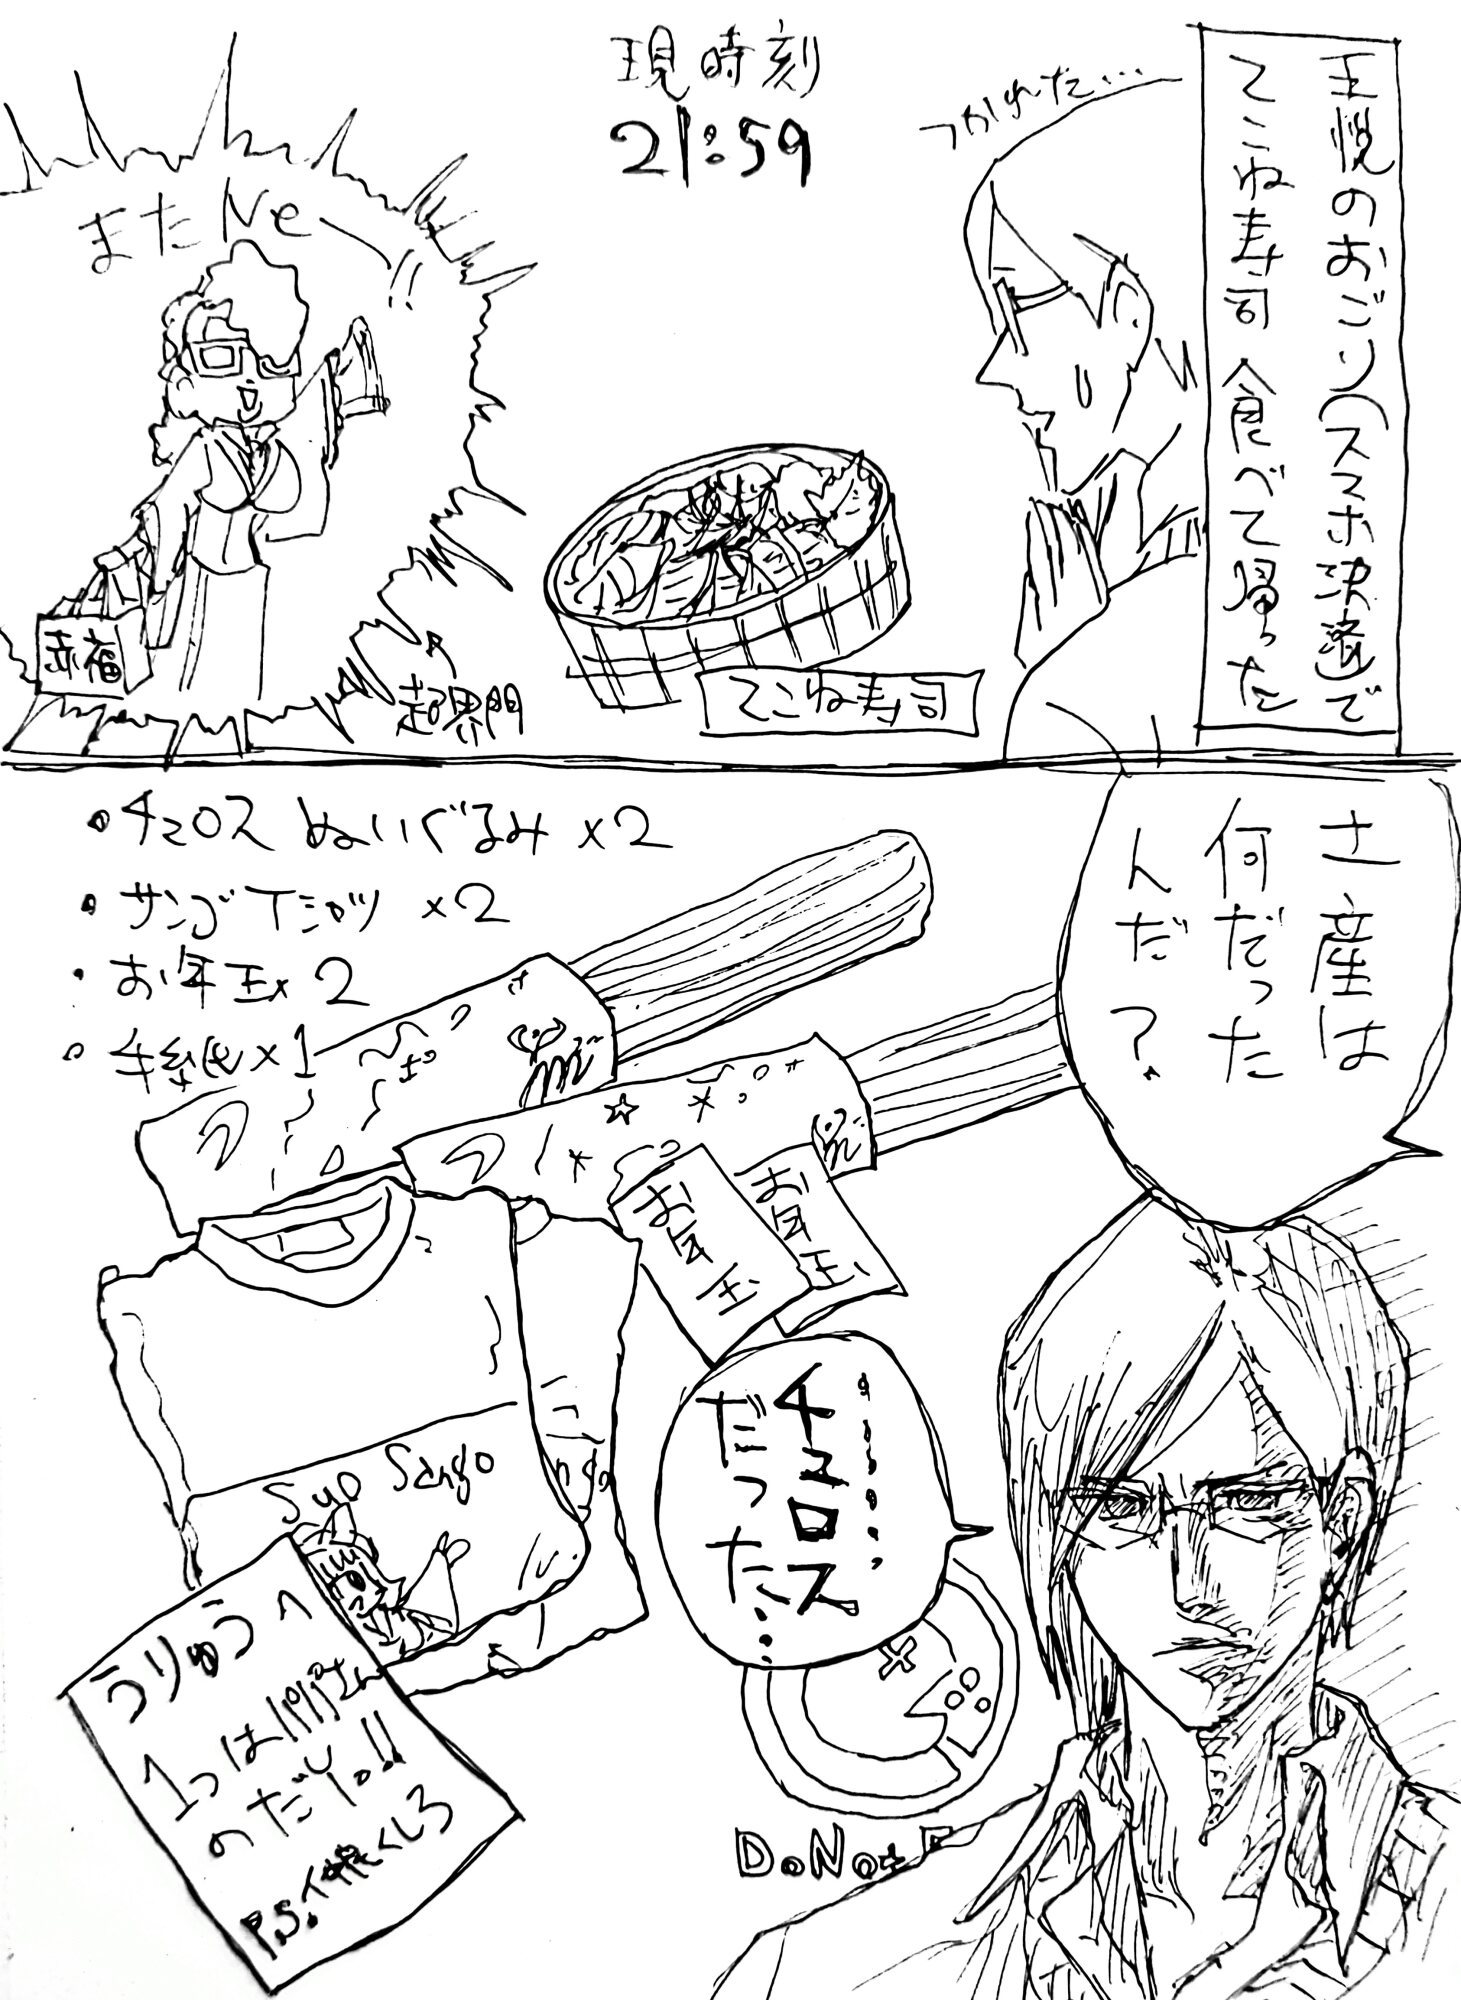 現時刻
21:59
王悦のおごり(スマホ決済で
てこね寿司食べて帰った
つかれた…
またNeー!!
赤福
超界門
てこね寿司
土産は
何だった
んだ?
・チュロスぬいぐるみ×2
・サンゴTシャツ ×2
・お年玉×2
・手紙×1
お年玉
お年玉
Suo Sango
ngo
………
チュロス
だった…
うりゅうへ
1つはパパさん
のだYo!!
P.S.仲良くしろ
DoNot